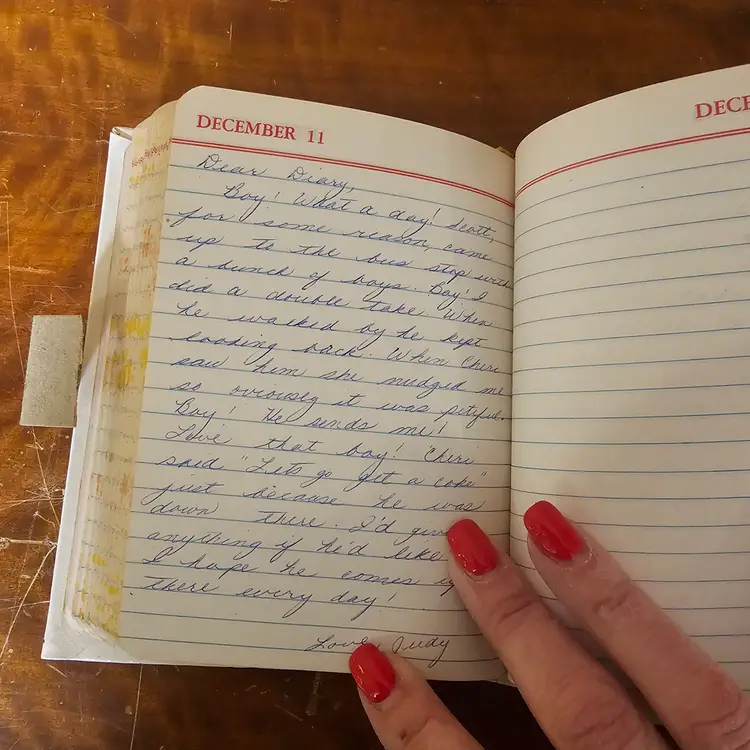 DECEMBER 11
DECE
Dear Diary,
Boy! What a day! Scott,
for some reason, came
up to the bus stop with
a bunch of boys. Boy! I
did a double take. When
he walked by he kept
looking back. When Cheri
saw him she nudged me
so oviously it was pityful.
Boy! He sends me!
Love that boy! Cheri
said "Lets go get a coke"
just because he was
down there. I'd give
anything if he'd like
I hope he comes
there every day!
Love, Judy